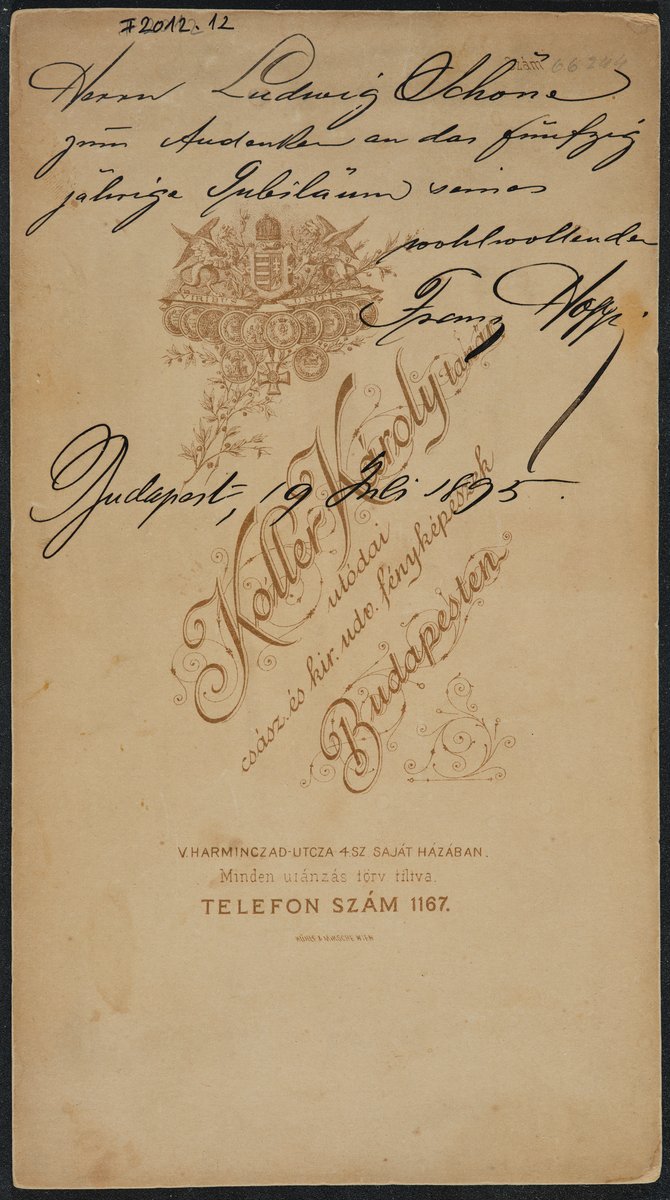 F 2012.12
Szám 66244
Herrn Ludwig Schöne
zum Andenken an das fünfzig
jährige Jubiläum seines
wohlwollenden
Franz Hopp
Budapest, 19 Juli 1895.
VIRTUTIS
Koller Károly tanár
utódai
csász. és kir. udv. fényképészek
Budapesten
V. HARMINCZAD-UTCZA 4 SZ SAJÁT HÁZÁBAN.
Minden utánzás törv tiltva.
TELEFON SZÁM 1167.
WIEN